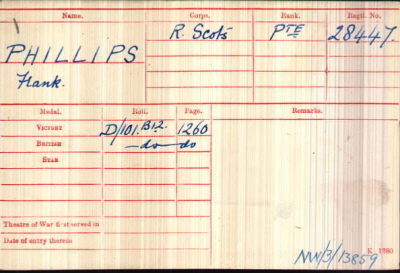 Name. Corps. Rank. Regtl. No.
PHILLIPS R. Scots PTE 28447.
Frank.
Medal. Roll. Page. Remarks.
VICTORY D/101.B12. 1260
BRITISH —do— do
STAR
Theatre of War first served in
Date of entry therein
K. 1380
NW/3/13859